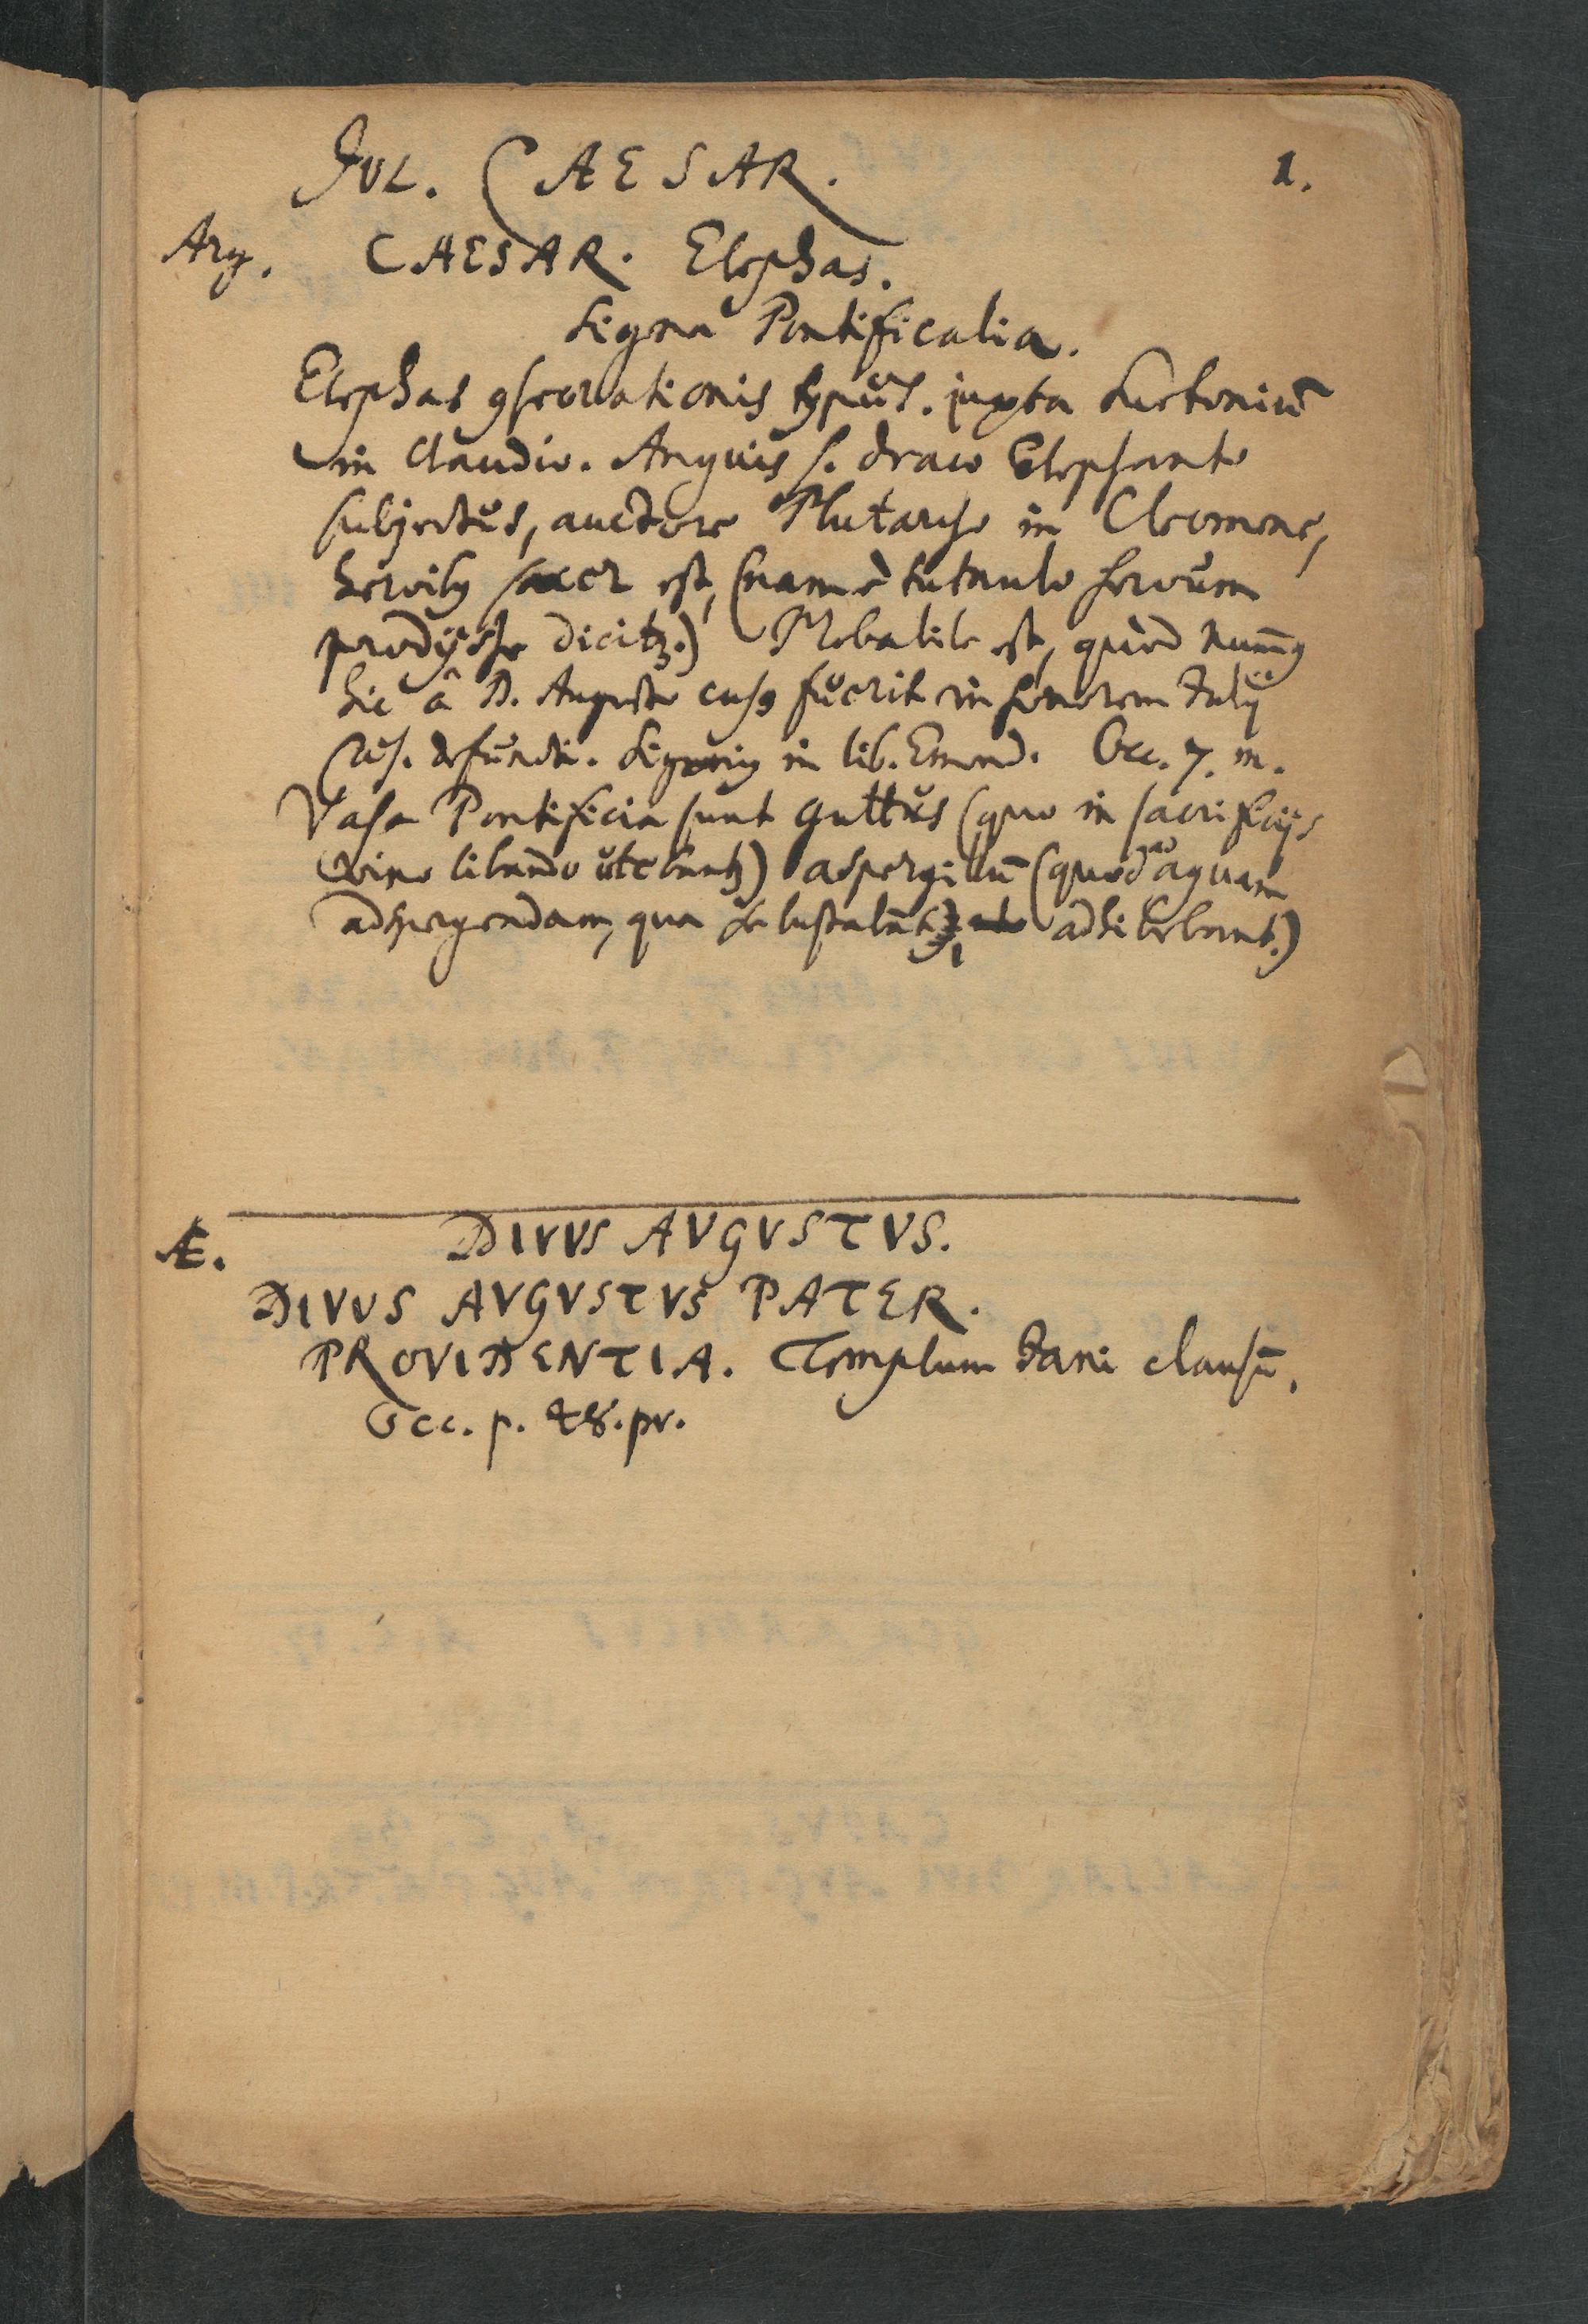 JUL. CAESAR. 1.
Arg. CAESAR. Elephas.
Signa Pontificalia.
Elephas ꝯsecrationis typus. juxta Suetoniū
in Claudio. Anguis s. draco Elephante
subjectus, auctore Plutarcho in Cleomene,
heroibꝯ sacer est, (nam è tumulo heroum
prodijsse dicitꝫ.) Probabile est, quòd num̄ꝯ
hic â D. Augusto cusꝯ fuerit in honorem Julij
Cæs. defuncti. Sigoniꝯ in lib. Emend. Occ. 7. m.
Vasa Pontificia sunt guttus (quo in sacrificijs
vino libando utebantꝫ) aspergillū (quod ad aquam
adspergendam, qua se lustrabāt, adhibebant.)
Æ. DIVVS AVGVSTVS.
DIVVS AVGVSTVS PATER.
PROVIDENTIA. Templum Jani clausū.
Occ. p. 48. pr.